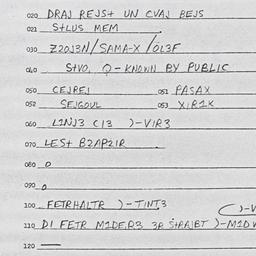 020 DRAJ REJST UN CVAJ BEJS
021 STLUS MEM
030 Z20J3N/SAMA-X/OL3F
040 STVO, Q-KNOWN BY PUBLIC
050 CEJREJ 051 PASAX
052 SEJGOUL 053 XIR1X
060 L1NJ3 C13 )-VIR3
070 LEST B2AP2IR
080 0
090 0
100 FETRHALTR )-TINT3
110 DI FETR M1DER3 3R STRAJBT )-M1D
120 —